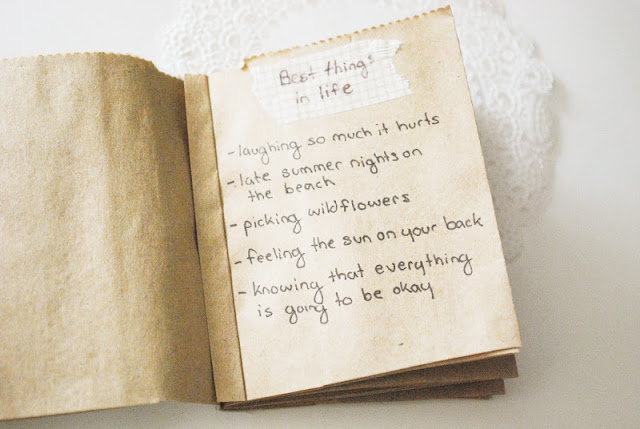 Best things
in life
- laughing so much it hurts
- late summer nights on
the beach
- picking wildflowers
- feeling the sun on your back
- knowing that everything
is going to be okay